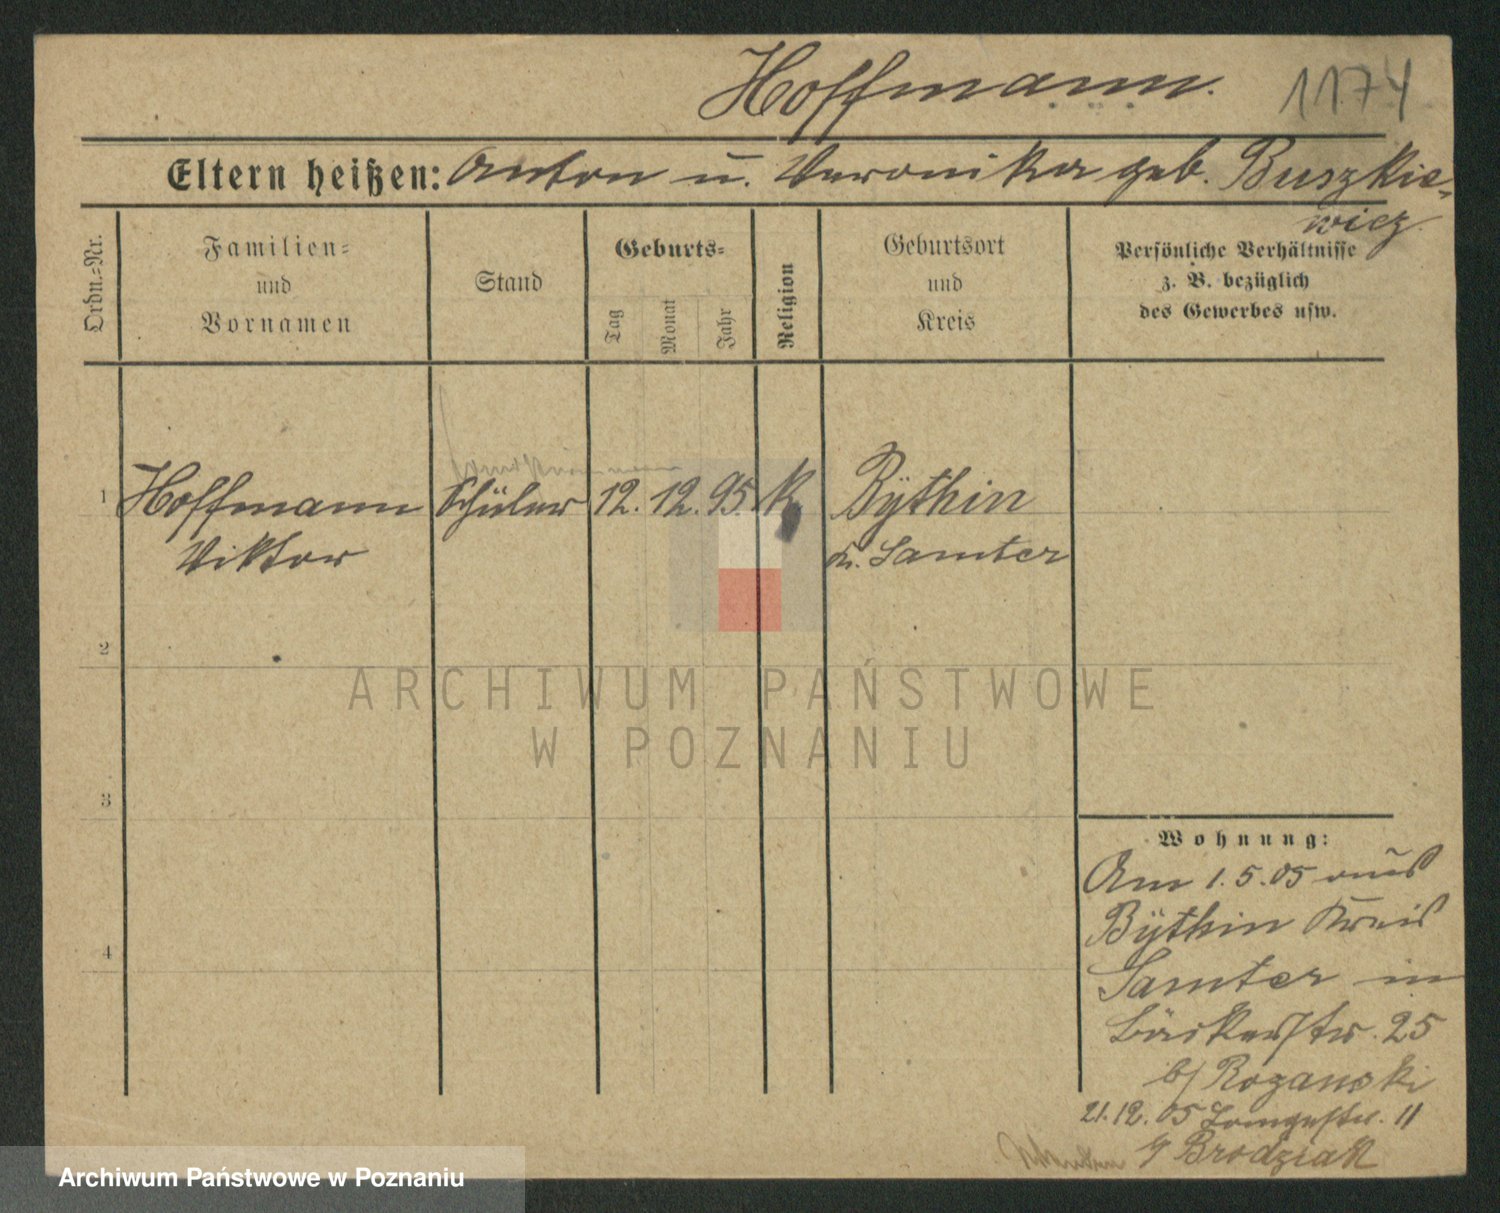 Hoffmann.
1174
Eltern heißen: Anton u. Veronika geb. Buszkie-
wicz.
Ordn.-Nr.
Familien-
und
Vornamen
Stand
Geburts-
Tag
Monat
Jahr
Religion
Geburtsort
und
Kreis
Persönliche Verhältnisse
z. B. bezüglich
des Gewerbes usw.
1 Hoffmann Schüler 12. 12. 95. K Bÿthin
Viktor Kr. Samter
2
ARCHIWUM PAŃSTWOWE
W POZNANIU
3
Wohnung:
Am 1.5.05 aus
Bÿthin Kreis
4
Samter in
Bäckerstr. 25
b/ Rozanski
21.12.05 Langestr. 11
Brodziak
Archiwum Państwowe w Poznaniu